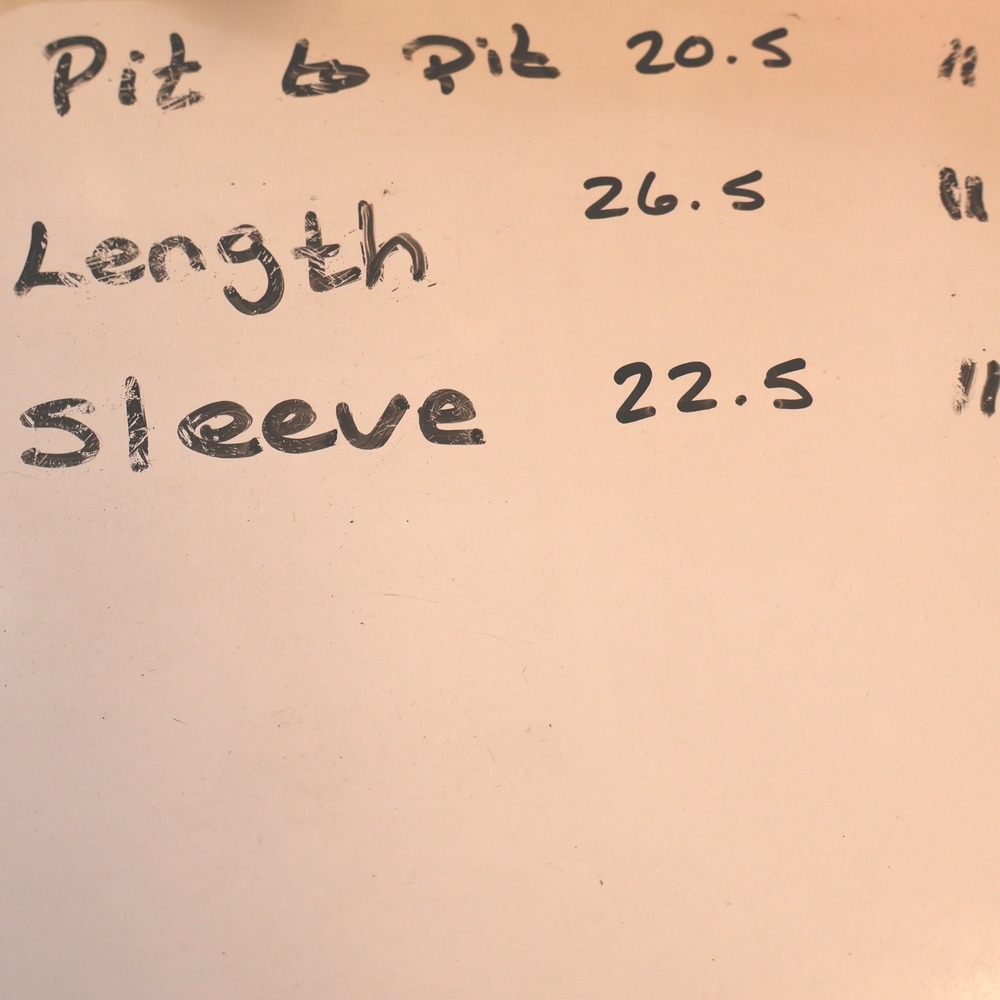 Pit to Pit 20.5 "
Length 26.5 "
Sleeve 22.5 "